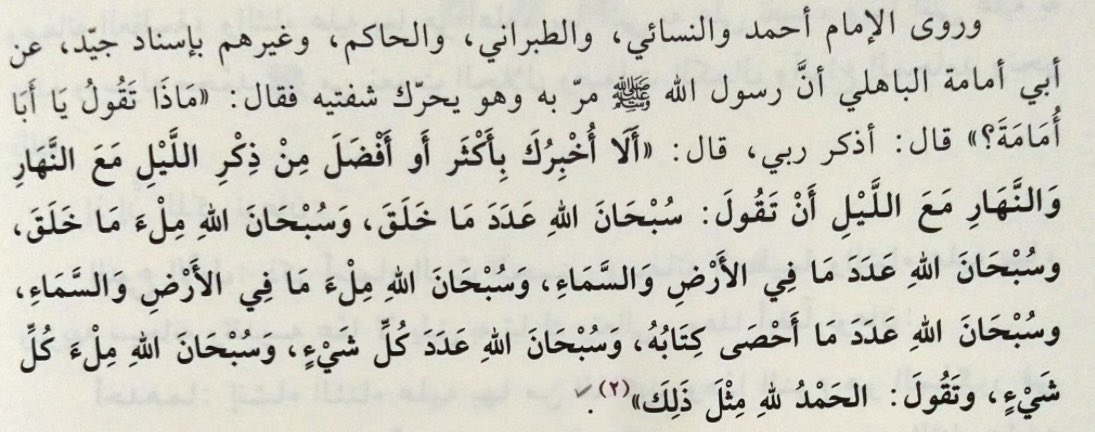 وروى الإمام أحمد والنسائي، والطبراني، والحاكم، وغيرهم بإسناد جيّد، عن
أبي أمامة الباهلي أنَّ رسول الله ﷺ مرّ به وهو يحرّك شفتيه فقال: «مَاذَا تَقُولُ يَا أَبَا
أُمَامَةَ؟» قال: أذكر ربي، قال: «أَلَا أُخْبِرُكَ بِأَكْثَر أَو أَفْضَلَ مِنْ ذِكْرِ اللَّيْلِ مَعَ النَّهَارِ
وَالنَّهَارِ مَعَ اللَّيْلِ أَنْ تَقُولَ: سُبْحَانَ اللهِ عَدَدَ مَا خَلَقَ، وَسُبْحَانَ اللهِ مِلْءَ مَا خَلَقَ،
وسُبْحَانَ اللهِ عَدَدَ مَا فِي الأَرْضِ وَالسَّمَاءِ، وَسُبْحَانَ اللهِ مِلْءَ مَا فِي الأَرْضِ وَالسَّمَاءِ،
وسُبْحَانَ اللهِ عَدَدَ مَا أَحْصَى كِتَابُهُ، وسُبْحَانَ اللهِ عَدَدَ كُلِّ شَيْءٍ، وسُبْحَانَ اللهِ مِلْءَ كُلِّ
شَيْءٍ، وتَقُولَ: الحَمْدُ للهِ مِثْلَ ذَلِكَ»(٢).